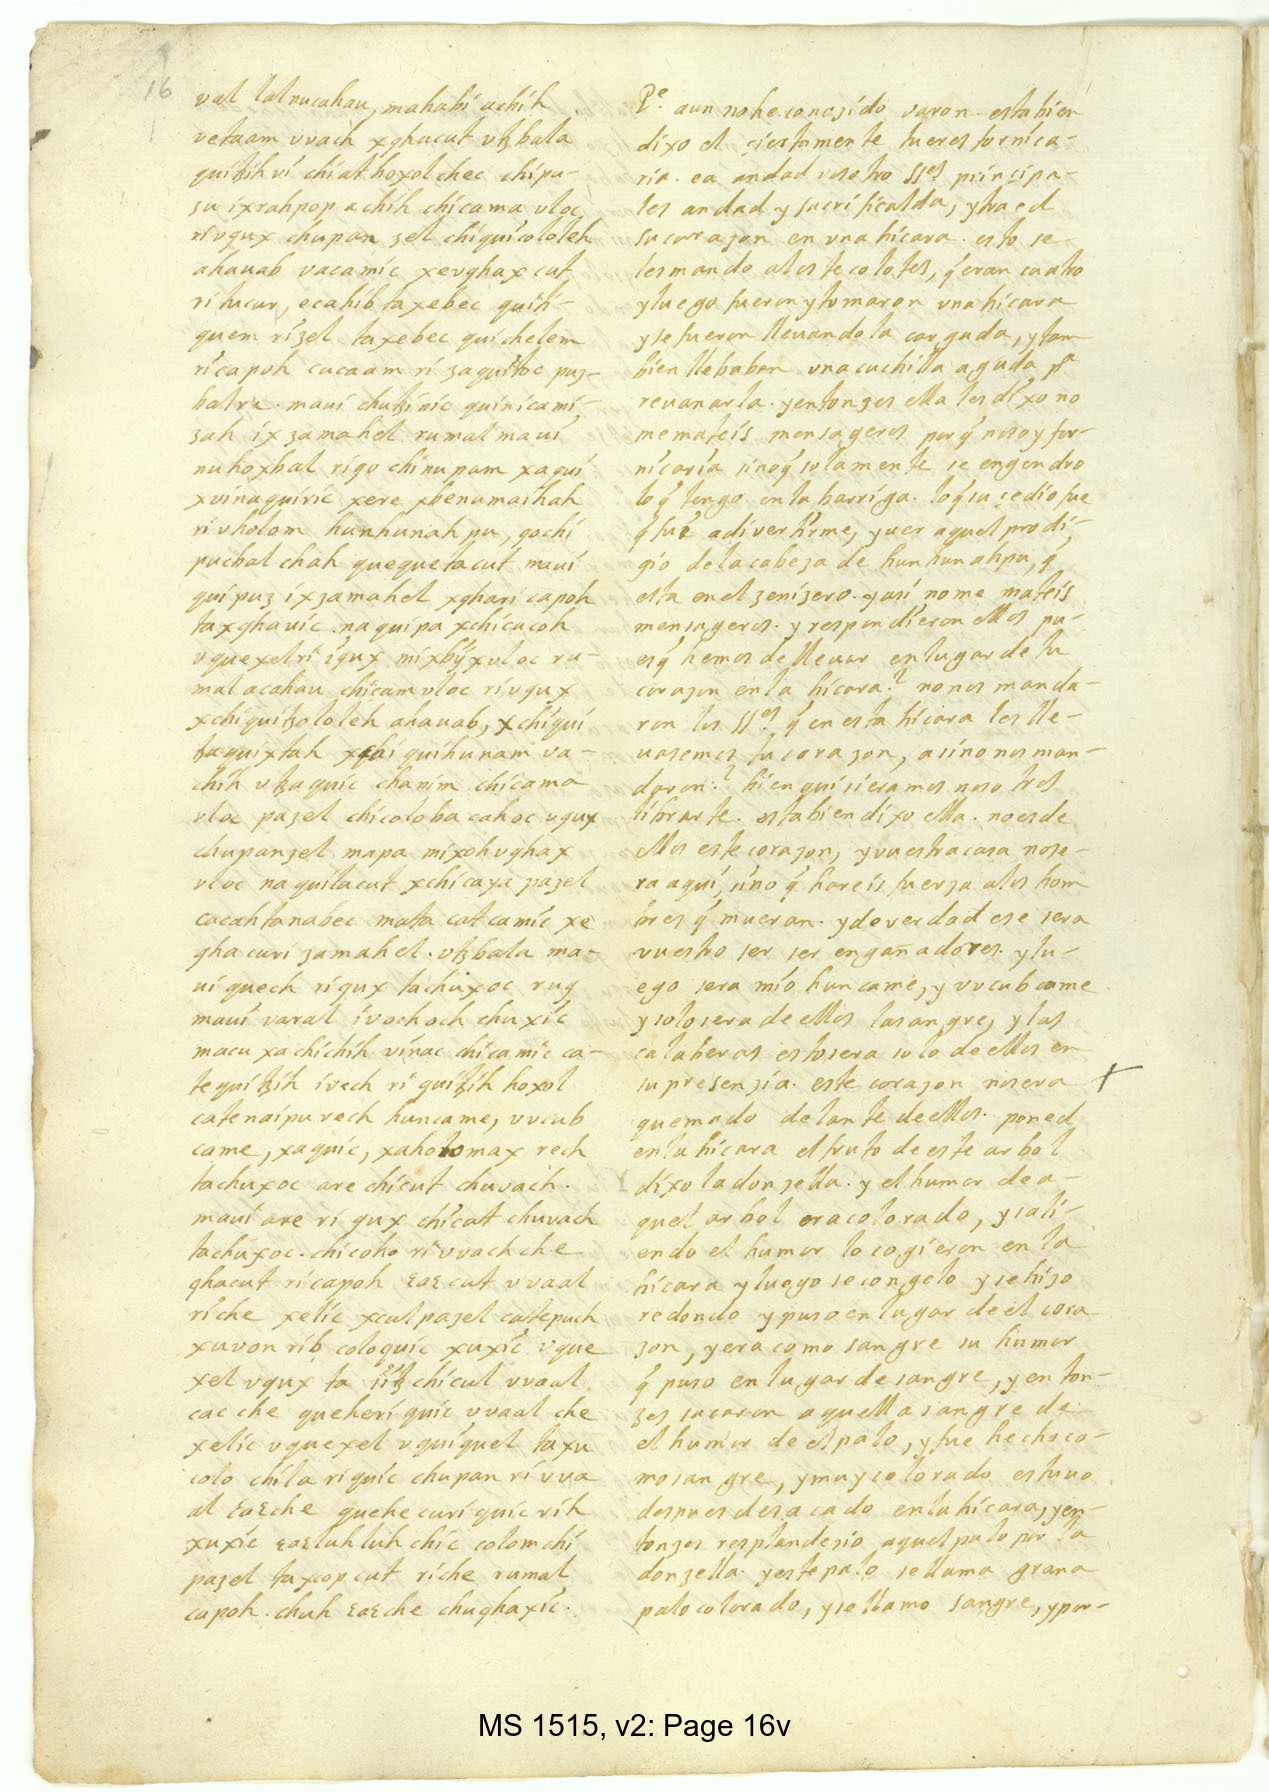 16
val lal nucahau, mahabi achih
vetaam vvach xghacut vtzbala
quitzih ui chiathoxol chec chipu-
zu ixrahpop achih chicama vloc
ri vgux chupan zel chiquicololeh
ahauab vacamic xevghaxcut
ri tucur, ecahib taxebec quiti-
quem rizel taxebec quichelem
ri capoh cucaam ri zaquitoc puz-
balre. maui chutzinic quinicami-
zah ixzamahel rumal maui
nuhoxbal rigo chinupam xaqui
xuinaquiric xere xbenumaihah
ri vholom hunhunahpu, gochi
pucbal chah quequetacut maui
quipuz ixzamahel xghari capoh
taxghauic. naquipa xchicacoh
vquexel ri igux mixbijx vloc ru-
mal acahau chicam vloc ri vgux
xchiquitzololeh ahauab, xchiqui
tzaquixtah xchiquihunam va-
chih vtzaquic chanim chicama
vloc pazel chicoloba cahoc ugux
chupanzel mapa mixohvghax
vloc naquilacut xchicaya pazel
cacahtanabec mata catcamic xe
ghacuri zamahel. vtzbala ma-
ui quech rigux tachuxoc rug
maui varal ivochoch chuxic
macu xachichih vinac chicamic ca-
te quitzih ivech ri quitzih hoxol
catenaipu rech huncame, vvcub
came, xaquic, xaholomax rech
tachuxoc are chicut chuvach.
maui are ri gux chicat chuvach
tachuxoc. chicoho ri vvach che
ghacut ri capoh cac cut vvaal
riche xelic xcul pazel catepuch
xuvon rib coloquic xuxic vque
xel vgux ta iitz chicul vvaal
cac che queheri quic vvaal che
xelic vquexel vquiquel taxu
colo chila ri quic chupan ri vva
al cacche quehe curi quic rih
xuxic cacluhluh chic colom chi
pazel taxopcut riche rumal
capoh. chuh cacche chughaxic.
Pe. aun no he conozido varon. esta bien
dixo el ciertamente tu eres fornica-
ria. ea andad vosotro sses principa-
les andad y sacrificalda, y traed
su corrazon en una hicara. esto se
les mando a los tecolotes, q eran cuatro
y luego fueron y tomaron una hicara
y se fueron llevando la cargada, y tam
bien llebaban una cuchilla aguda pa
revanarla. y entonzes ella les dixo no
me mateis mensageros porq no soy for-
nicaria sinoq solamente se engendro
loq tengo en la barriga. loq sucedio fue
q fui a divertirme, y ver aquel prodi-
gio de la cabeza de hunhunahpu, q
esta en el zenizero. y asi no me mateis
mensageros. y respondieron ellos pu-
es q hemos de llevar en lugar de tu
corazon en la hicara? no nos manda-
ron los sses q en esta hicara les lle-
vasemos tu corazon, asi no nos man-
daron? bien quisieramos nosotros
librarte. esta bien dixo ella. no es de
ellos este corazon, y vuestra casa no se-
ra aqui, sino q hareis fuerza a los hom
bres q mueran. y de verdad ese sera
vuestro ser ser engañadores. y lu-
ego sera mio huncame, y vvcubcame
y solo sera de ellos la sangre, y las
calaberas esto sera solo de ellos en
su presenzia. este corazon no sera
quemado delante de ellos. poned
en la hicara el fruto de este arbol
dixo la donzella. y el humor de a-
quel arbol era colorado, y sali-
endo el humor lo cogieron en la
hicara y luego se congelo y se hizo
redondo y puso en lugar de el cora
zon, y era como sangre su humor
q puso en lugar de sangre, y enton-
zes sacaron aquella sangre de
el humor de el palo, y fue hecho co-
mo sangre, y muy colorado estuvo
despues de sacado en la hicara, y en-
tonzes resplandezio aquel palo por la
donzella. y este palo se llama grana
palo colorado, y se llamo sangre, y por-
MS 1515, v2: Page 16v